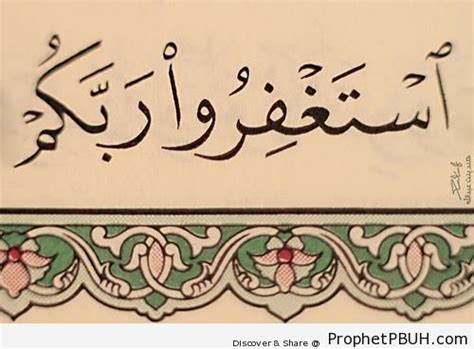 ٱسْتَغْفِرُوا۟ رَبَّكُمْ
Discover & Share @ ProphetPBUH.com